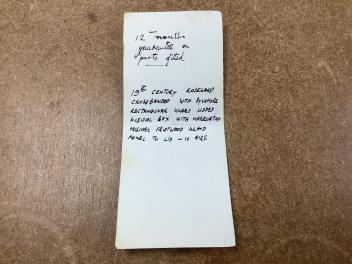 12 months
guarantee on
parts fitted
19TH CENTURY ROSEWOOD
CROSSBANDED WITH SYCAMORE
RECTANGULAR HINGED LIDDED
MUSICAL BOX WITH MARQUETRY
MUSICAL FRUITWOOD INLAID
PANEL TO LID - 10 AIRS